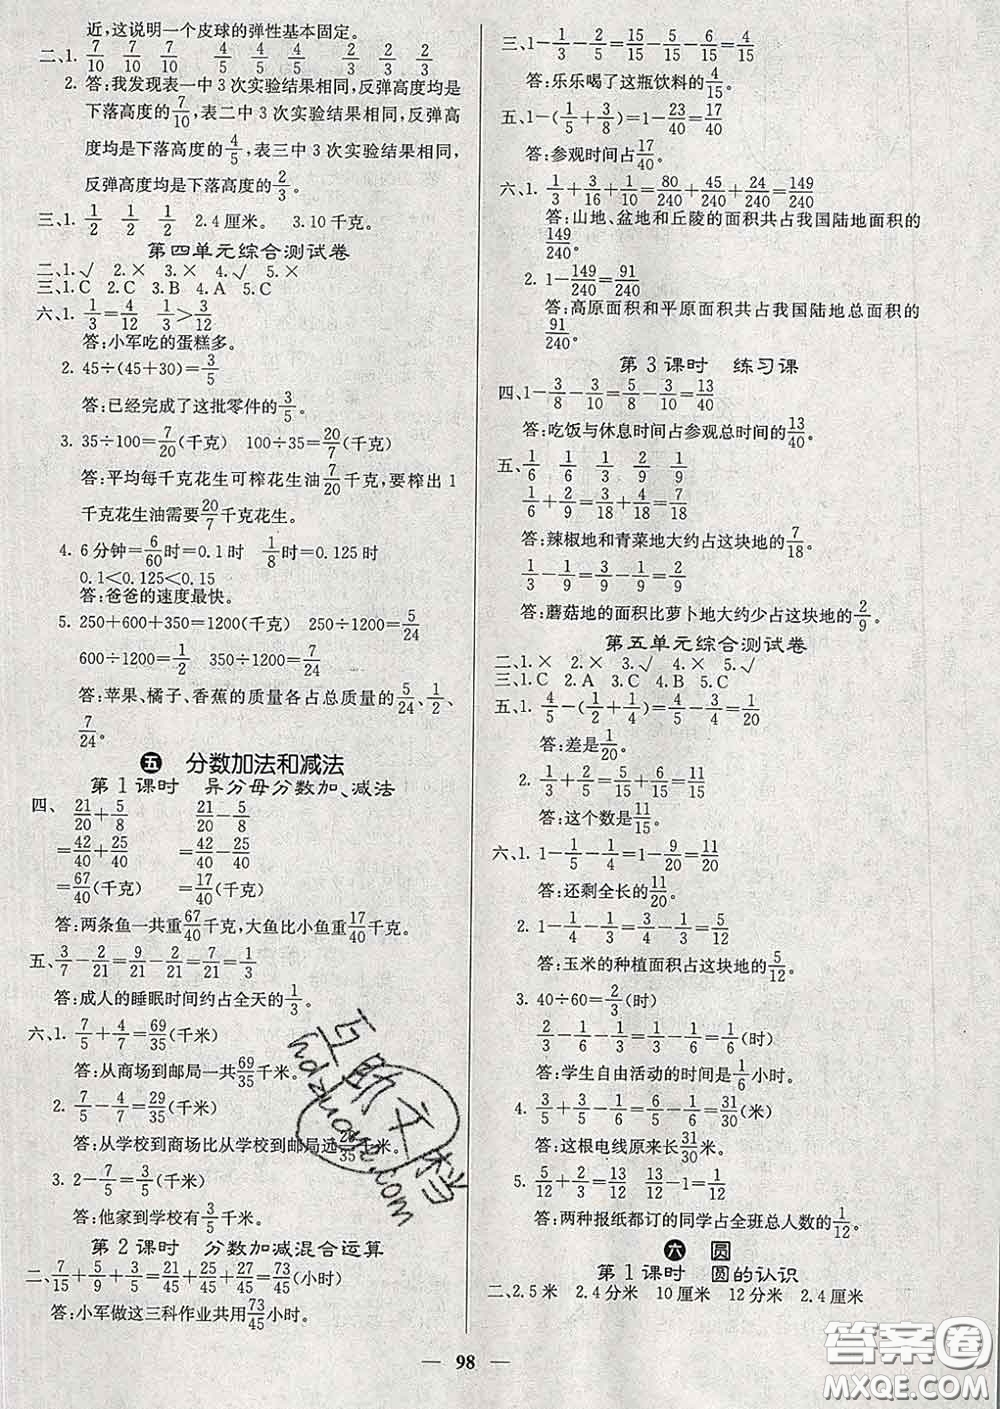 近，这说明一个皮球的弹性基本固定。
二、1. 7/10 7/10 7/10 4/5 4/5 4/5 2/3 2/3 2/3
2. 答:我发现表一中3次实验结果相同,反弹高度均是
下落高度的7/10,表二中3次实验结果相同,反弹高
度均是下落高度的4/5,表三中3次实验结果相同,
反弹高度均是下落高度的2/3。
三、1. 1/2 1/2 1/2 2.4厘米。 3.10千克。
第四单元综合测试卷
二、1.√ 2.× 3.× 4.√ 5.×
三、1.C 2.C 3.B 4.A 5.C
六、1. 1/3=4/12 1/3>3/12
答:小军吃的蛋糕多。
2. 45÷(45+30)=3/5
答:已经完成了这批零件的3/5。
3. 35÷100=7/20(千克) 100÷35=20/7(千克)
答:平均每千克花生可榨花生油7/20千克,要榨出1
千克花生油需要20/7千克花生。
4. 6分钟=6/60时=0.1时 1/8时=0.125时
0.1<0.125<0.15
答:爸爸的速度最快。
5. 250+600+350=1200(千克) 250÷1200=5/24
600÷1200=1/2 350÷1200=7/24
答:苹果、橘子、香蕉的质量各占总质量的5/24、1/2、
7/24。
五 分数加法和减法
第1课时 异分母分数加、减法
四、 21/20+5/8 21/20-5/8
=42/40+25/40 =42/40-25/40
=67/40(千克) =17/40(千克)
答:两条鱼一共重67/40千克,大鱼比小鱼重17/40千克。
五、3/7-2/21=9/21-2/21=7/21=1/3
答:成人的睡眠时间约占全天的1/3。
六、1. 7/5+4/7=69/35(千米)
答:从商场到邮局一共69/35千米。
2. 7/5-4/7=29/35(千米)
答:从学校到商场比从学校到邮局远29/35千米。
3. 2-7/5=3/5(千米)
答:他家到学校有3/5千米。
第2课时 分数加减混合运算
二、7/15+5/9+3/5=21/45+25/45+27/45=73/45(小时)
答:小军做这三科作业共用73/45小时。
三、1-1/3-2/5=15/15-5/15-6/15=4/15
答:乐乐喝了这瓶饮料的4/15。
五、1-(1/5+3/8)=1-23/40=17/40
答:参观时间占17/40。
六、1. 1/3+3/16+1/10=80/240+45/240+24/240=149/240
答:山地、盆地和丘陵的面积共占我国陆地面积的
149/240。
2. 1-149/240=91/240
答:高原面积和平原面积共占我国陆地总面积的
91/240。
第3课时 练习课
四、1-3/8-3/10=5/8-3/10=13/40
答:吃饭与休息时间占参观总时间的13/40。
五、1/6 1/3 2/9 1/9
1/6+2/9=3/18+4/18=7/18
答:辣椒地和青菜地大约占这块地的7/18。
1/3-1/9=3/9-1/9=2/9
答:蘑菇地的面积比萝卜地大约少占这块地的2/9。
第五单元综合测试卷
二、1.× 2.× 3.√ 4.× 5.√
三、1.C 2.A 3.C 4.B 5.C
五、1. 4/5-(1/2+1/4)=4/5-3/4=1/20
答:差是1/20。
2. 1/3+2/5=5/15+6/15=11/15
答:这个数是11/15。
六、1. 1-1/5-1/4=1-9/20=11/20
答:还剩全长的11/20。
2. 1-1/4-1/3=3/4-1/3=5/12
答:玉米的种植面积占这块地的5/12。
3. 40÷60=2/3(时)
2/3-1/3-1/6=1/3-1/6=1/6(时)
答:学生自由活动的时间是1/6小时。
4. 3/10+3/5+1/6=9/30+18/30+4/30=31/30(米)
答:这根电线原来长31/30米。
5. 5/12+2/3=13/12 13/12-1=1/12
答:两种报纸都订的同学占全班总人数的1/12。
六 圆
第1课时 圆的认识
二、2.5米 2.4分米 10厘米 12分米 2.4厘米
98
互助文档
hdzuoye.com
答案圈
MXQE.COM